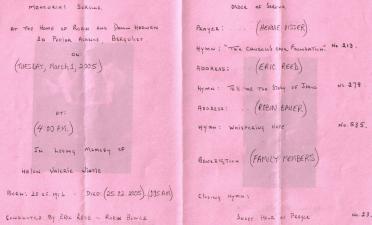 MEMORIAL SERVICE
AT THE HOME OF ROBIN AND DAWN
AVENUE, BERGVLIET
ON
(TUESDAY, March 1, 2005)
AT:
(4:00 P.M.)
IN LOVING MEMORY OF
HELEN VALERIE
BORN: DIED: (25.02.2005)
CONDUCTED BY ERIC REED - ROBIN
ORDER OF SERVICE
PRAYER: ... (HENNIE VISSER)
HYMN: "THE CHURCH'S ONE FOUNDATION" No 213.
ADDRESS: (ERIC REED)
HYMN: TELL ME THE STORY OF JESUS No. 279
ADDRESS: (ROBIN BAUER)
HYMN: WHISPERING HOPE No. 535.
BENEDICTION (FAMILY MEMBERS)
CLOSING HYMN:
SWEET HOUR OF PRAYER No. 23.